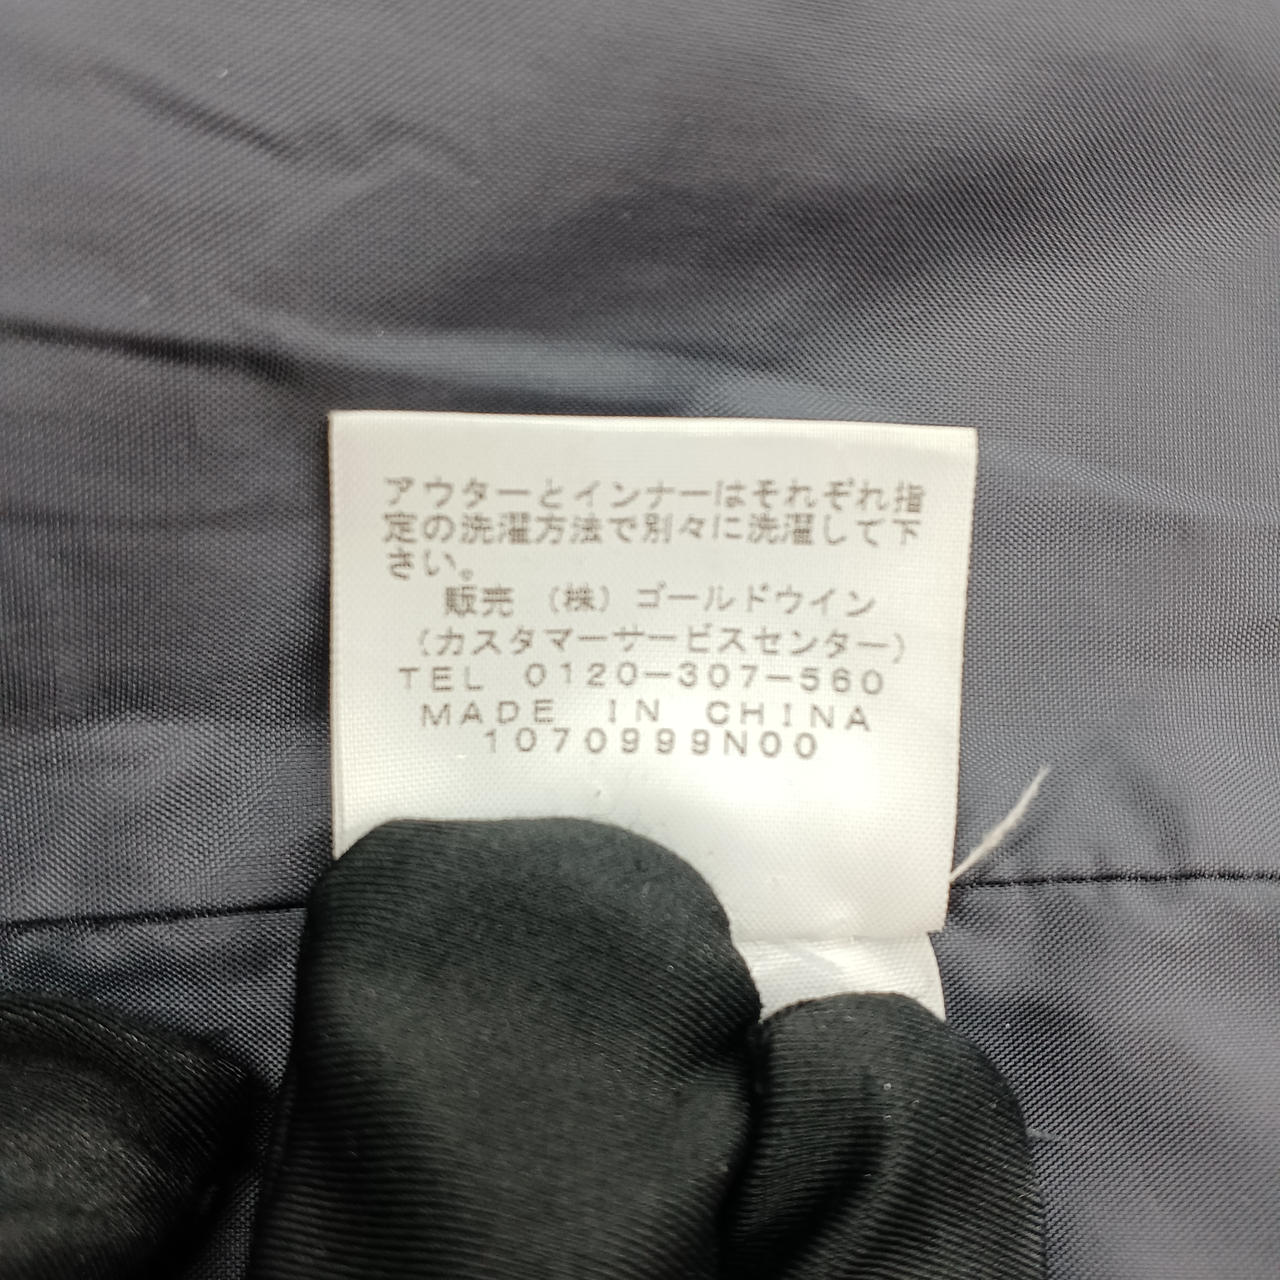 アウターとインナーはそれぞれ指
定の洗濯方法で別々に洗濯して下
さい。
販売 (株) ゴールドウイン
(カスタマーサービスセンター)
TEL 0120-307-560
MADE IN CHINA
1070999N00